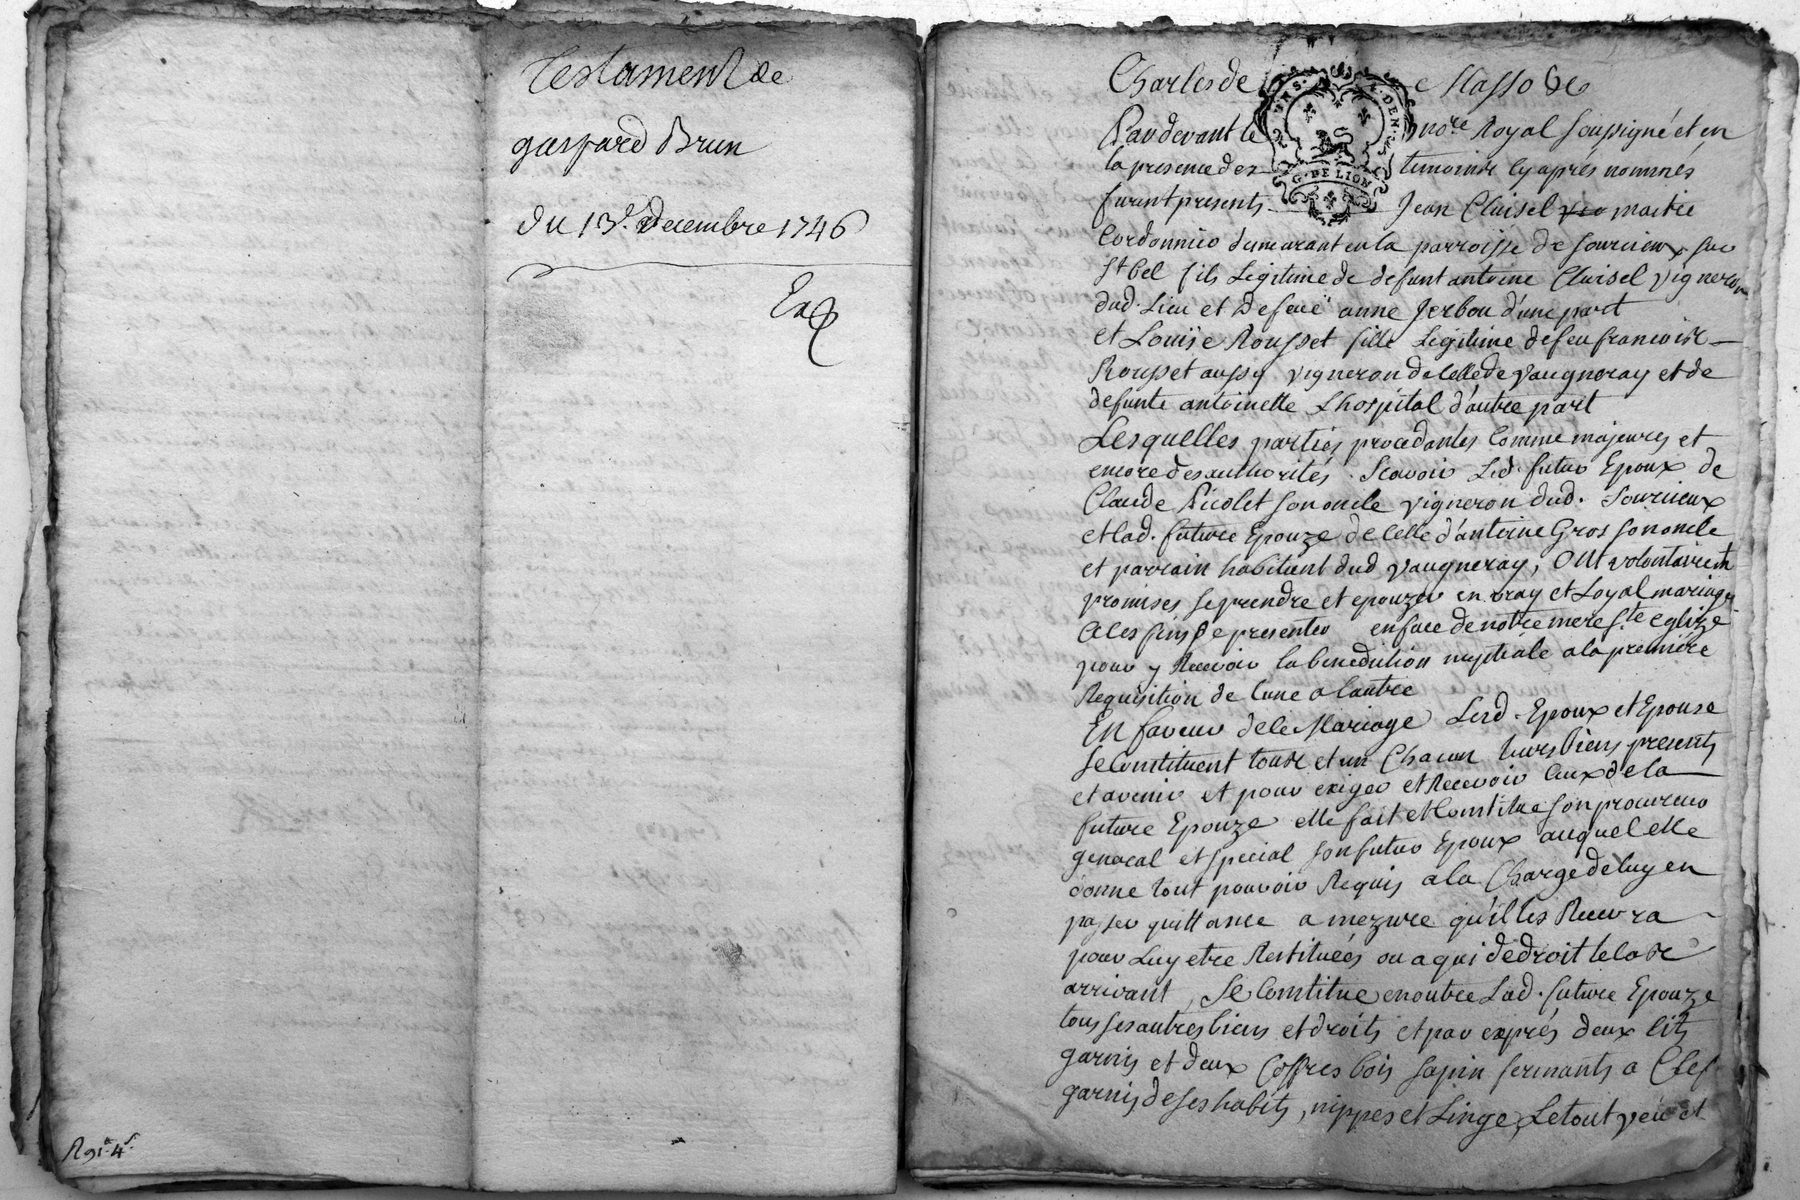 Testament de
gaspard Brun
du 13.e decembre 1746
Charles de
Pardevant le no.re Royal soussigné et en
la presence des temoins cy aprés nommés
furent presents Jean Cluisel maitre
Cordonnier demeurant en la parroisse de sourcieux sur
st bel fils Legitime de defunt antoine Cluisel vigneron
dud. Lieu et Defeuë anne Jerbou d'une part
et Louïse Rousset fille Legitime de feu francois
Rousset aussy vigneron de celle de vaugneray et de
defunte antoinette Lhospital d'autre part
Lesquelles parties procedantes comme majeures et
encore des authorités. Scavoir Led. futur Epoux de
Claude Picolet son oncle vigneron dud. Sourcieux
et lad. future Epouze de celle d'antoine Gros son oncle
et parrain habitant dud vaugneray, Ont volontairemt
promises se prendre et epouzer en vray et Loyal mariage
a ces fins se presenter en face de notre mere s.te eglize
pour y Recevoir la benediction nuptiale a la premiére
Requisition de lune a lautre
En faveur de ce Mariage Lesd. Epoux et Epouse
se Constituent tous et un Chacun leurs biens presents
et avenir et pour exiger et Recevoir ceux de la
future Epouze elle fait et Constitue son procureur
general et special son futur Epoux auquel elle
donne tout pouvoir Requis a la Charge de luy en
passer quittance a mezure qu'il les Recevra
pour Luy etre Restituées ou a qui de droit le cas
arrivant, Se Constitue en outre Lad. future Epouze
tous ses autres biens et droits et par exprés deux lits
garnis et deux Coffres bois sapin fermants a Clef
garnis de ses habits, nippes et Linge, Le tout veu et
G. DE LION